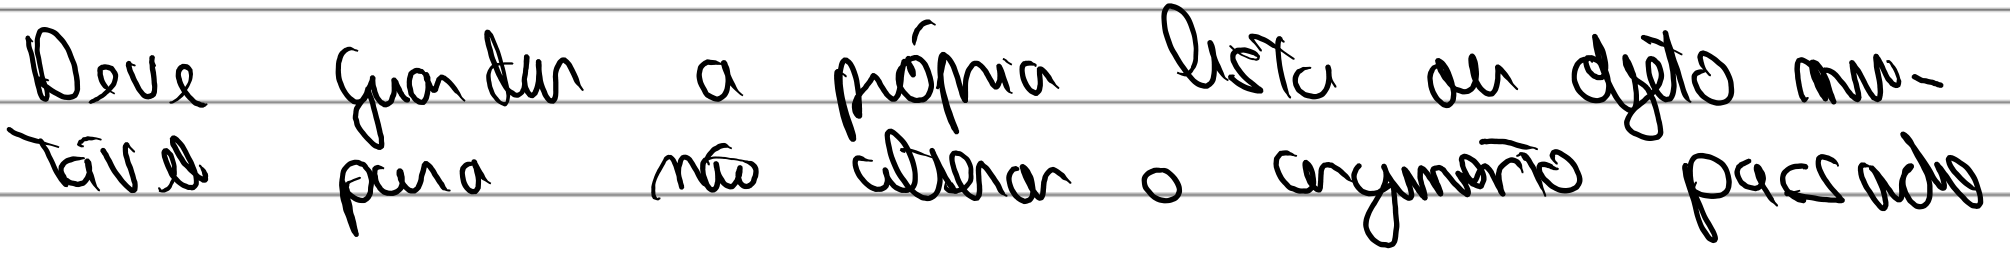 Deve guardar a própria lista ou objeto mu-
tável para não alterar o argumento passado